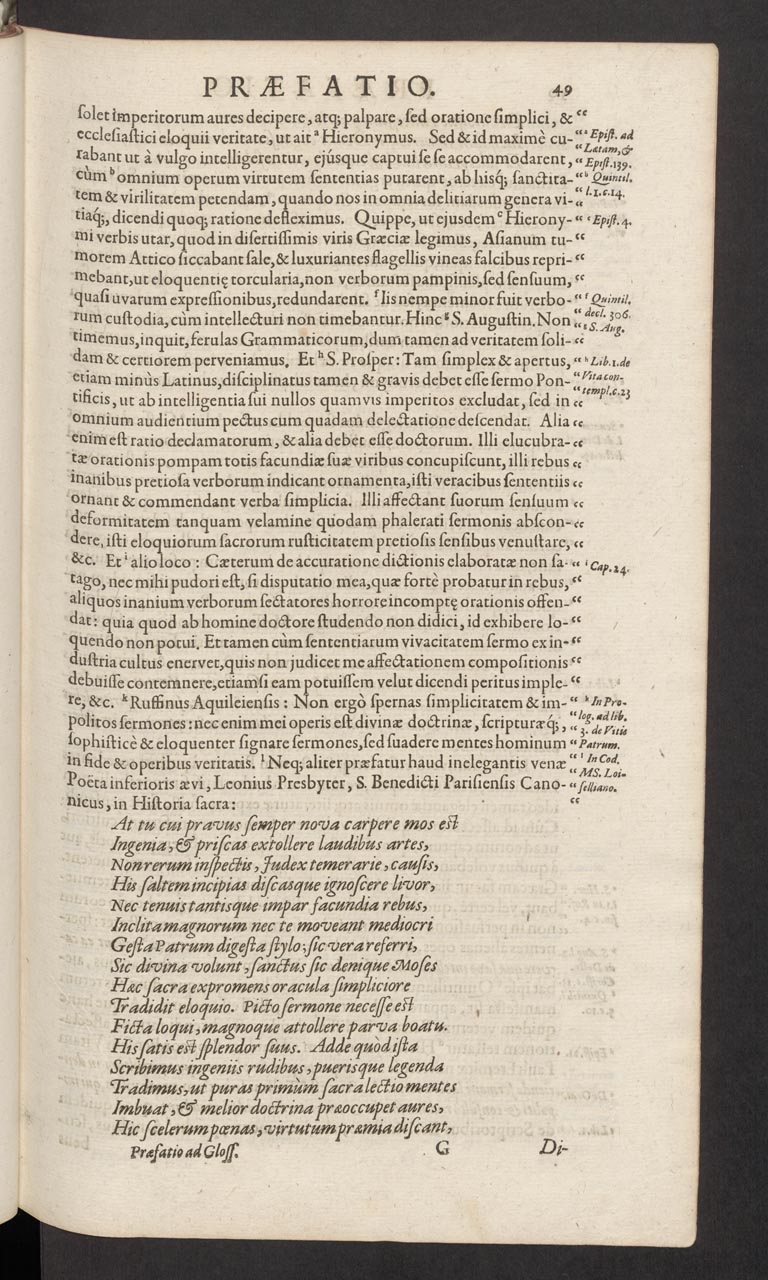 PRÆFATIO. 49
ſolet imperitorum aures decipere, atq; palpare, ſed oratione ſimplici, & “
eccleſiaſtici eloquii veritate, ut ait ª Hieronymus. Sed & id maximè cu- “ ª Epiſt. ad
rabant ut à vulgo intelligerentur, ejúsque captui ſe ſe accommodarent, “ Lætam, &
“ Epiſt. 139.
cùm ᵇ omnium operum virtutem ſententias putarent, ab hisq; ſanctita- “ ᵇ Quintil.
tem & virilitatem petendam, quando nos in omnia delitiarum genera vi- “ l. 1. c. 14.
tiaq;, dicendi quoq; ratione defleximus. Quippe, ut ejusdem ᶜ Hierony- “ ᶜ Epiſt. 4.
mi verbis utar, quod in diſertiſſimis viris Græciæ legimus, Aſianum tu- “
morem Attico ſiccabant ſale, & luxuriantes flagellis vineas falcibus repri- “
mebant, ut eloquentię torcularia, non verborum pampinis, ſed ſenſuum, “
quaſi uvarum expreſſionibus, redundarent. ᶠ Iis nempe minor fuit verbo- “ ᶠ Quintil.
rum cuſtodia, cùm intellecturi non timebantur. Hinc ᵍ S. Auguſtin. Non “ decl. 306.
“ ᵍ S. Aug.
timemus, inquit, ferulas Grammaticorum, dum tamen ad veritatem ſoli- “
dam & certiorem perveniamus. Et ʰ S. Proſper: Tam ſimplex & apertus, “ ʰ Lib. 1. de
etiam minùs Latinus, diſciplinatus tamen & gravis debet eſſe ſermo Pon- “ Vita con-
tificis, ut ab intelligentia ſui nullos quamvis imperitos excludat, ſed in “ templ. c. 23
omnium audientium pectus cum quadam delectatione deſcendat. Alia “
enim eſt ratio declamatorum, & alia debet eſſe doctorum. Illi elucubra- “
tæ orationis pompam totis facundiæ ſuæ viribus concupiſcunt, illi rebus “
inanibus pretioſa verborum indicant ornamenta, iſti veracibus ſententiis “
ornant & commendant verba ſimplicia. Illi affectant ſuorum ſenſuum “
deformitatem tanquam velamine quodam phalerati ſermonis abſcon- “
dere, iſti eloquiorum ſacrorum ruſticitatem pretioſis ſenſibus venuſtare, “
&c. Et ⁱ alio loco: Cæterum de accuratione dictionis elaboratæ non ſa- “ ⁱ Cap. 24.
tago, nec mihi pudori eſt, ſi disputatio mea, quæ fortè probatur in rebus, “
aliquos inanium verborum ſectatores horrore incomptę orationis offen- “
dat: quia quod ab homine doctore ſtudendo non didici, id exhibere lo- “
quendo non potui. Et tamen cùm ſententiarum vivacitatem ſermo ex in- “
duſtria cultus enervet, quis non judicet me affectationem compoſitionis “
debuiſſe contemnere, etiamſi eam potuiſſem velut dicendi peritus imple- “
re, &c. ᵏ Ruffinus Aquileienſis: Non ergò ſpernas ſimplicitatem & im- “ ᵏ In Pro-
politos ſermones: nec enim mei operis eſt divinæ doctrinæ, ſcripturæq;, “ log. ad lib.
“ 3. de Vitis
ſophiſticè & eloquenter ſignare ſermones, ſed ſuadere mentes hominum “ Patrum.
in fide & operibus veritatis. ˡ Neq; aliter præfatur haud inelegantis venæ “ ˡ In Cod.
“ MS. Loi-
Poëta inferioris ævi, Leonius Presbyter, S. Benedicti Pariſienſis Cano- “ ſelliano.
nicus, in Hiſtoria ſacra: “
At tu cui pravus ſemper nova carpere mos eſt
Ingenia, & priſcas extollere laudibus artes,
Non rerum inſpectis, Judex temerarie, cauſis,
His ſaltem incipias diſcasque ignoſcere livor,
Nec tenuis tantisque impar facundia rebus,
Inclita magnorum nec te moveant mediocri
Geſta Patrum digeſta ſtylo; ſic vera referri,
Sic divina volunt, ſanctus ſic denique Moſes
Hæc ſacra expromens oracula ſimpliciore
Tradidit eloquio. Picto ſermone neceſſe eſt
Ficta loqui, magnoque attollere parva boatu.
His ſatis eſt ſplendor ſuus. Adde quòd iſta
Scribimus ingeniis rudibus, puerisque legenda
Tradimus, ut puras primùm ſacra lectio mentes
Imbuat, & melior doctrina præoccupet aures,
Hic ſcelerum pœnas, virtutum præmia diſcant,
Præfatio ad Gloſſ. G Di-